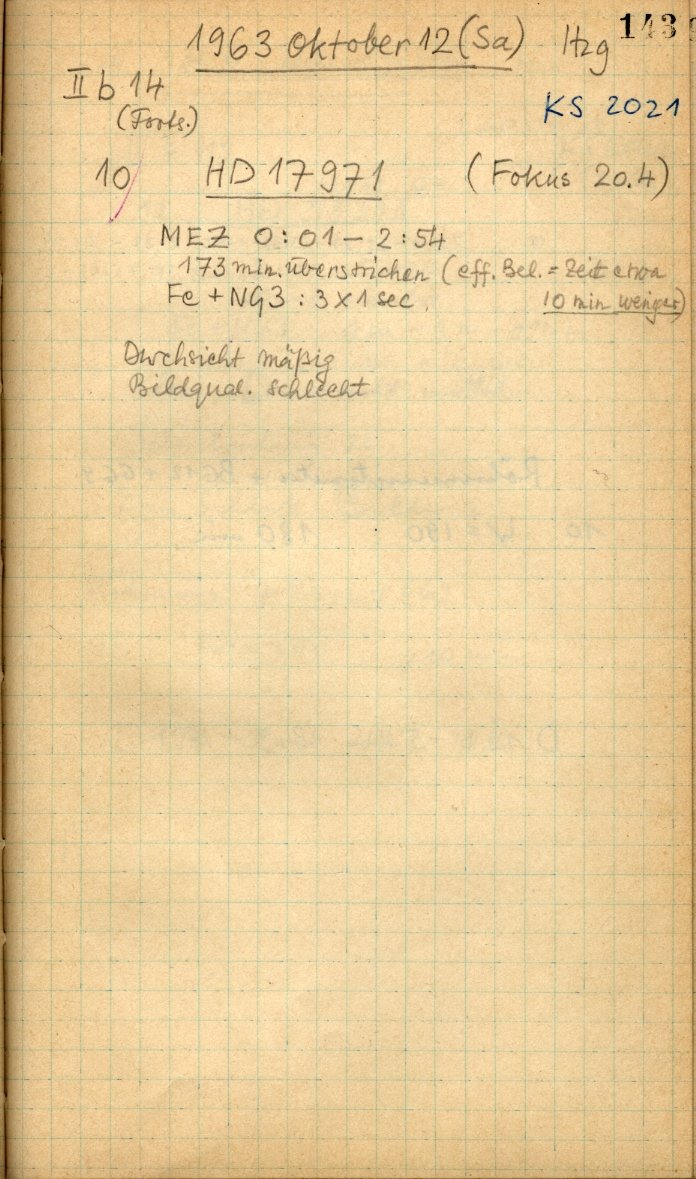 1963 Oktober 12 (Sa) Htzg 143
II b 14
(Forts.)
KS 2021
10 HD 17971 (Fokus 20.4)
MEZ 0:01 – 2:54
173 min. überstrichen (eff. Bel. = Zeit etwa
10 min weniger)
Fe + NG3 : 3 x 1 sec.
Durchsicht mäßig
Bildqual. schlecht